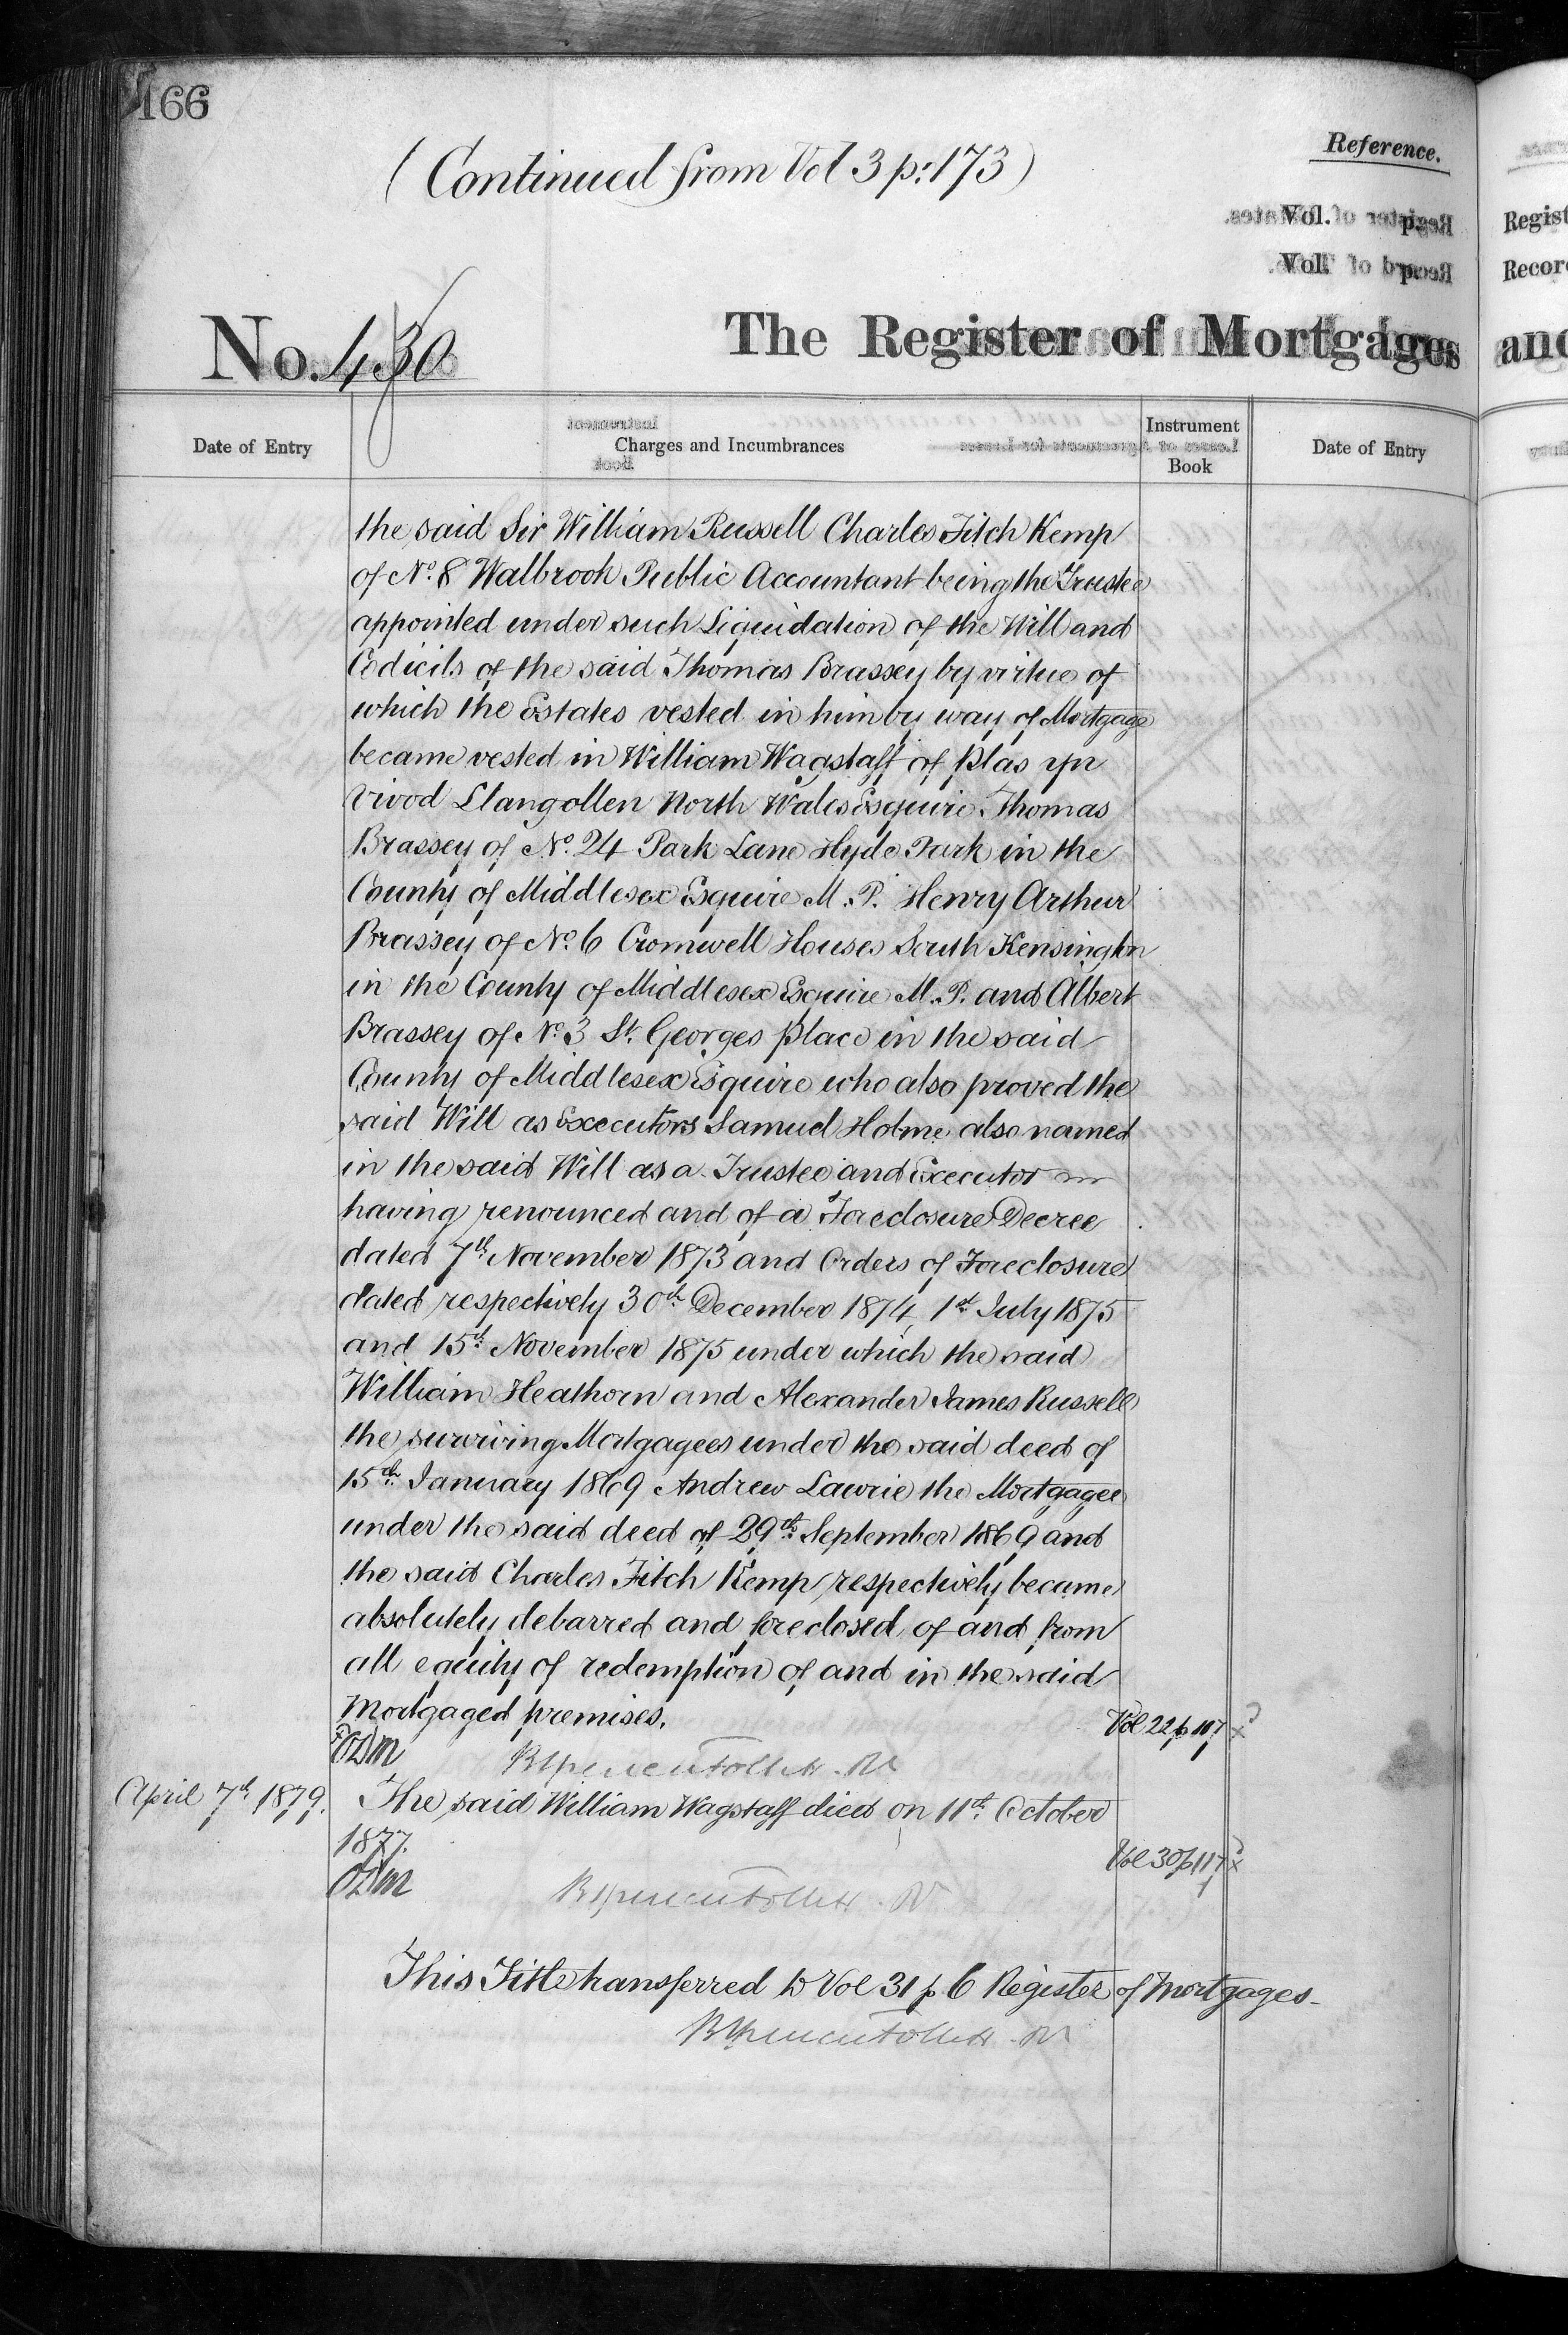 166
(Continued from Vol 3 p: 173)
Reference.
Vol. p.
Vol. p.
No. 430
The Register of Mortgages
Date of Entry
Charges and Incumbrances
Instrument
Book
Date of Entry
the said Sir William Russell Charles Fitch Kemp
of No. 8 Walbrook Public Accountant being the Trustee
appointed under such Liquidation of the Will and
Codicils of the said Thomas Brassey by virtue of
which the Estates vested in him by way of Mortgage
became vested in William Wagstaff of Plas yn
Vivod Llangollen North Wales Esquire Thomas
Brassey of No. 24 Park Lane Hyde Park in the
County of Middlesex Esquire M.P. Henry Arthur
Brassey of No. 6 Cromwell Houses South Kensington
in the County of Middlesex Esquire M.P. and Albert
Brassey of No. 3 St. Georges Place in the said
County of Middlesex Esquire who also proved the
said Will as Executors Samuel Holme also named
in the said Will as a Trustee and Executor
having renounced and of a Foreclosure Decree
dated 7th November 1873 and Orders of Foreclosure
dated respectively 30th December 1874, 1st July 1875
and 15th November 1875 under which the said
William Heathorn and Alexander James Russell
the surviving Mortgagees under the said deed of
15th January 1869 Andrew Lawrie the Mortgagee
under the said deed of 29th September 1869 and
the said Charles Fitch Kemp respectively became
absolutely debarred and foreclosed of and from
all equity of redemption of and in the said
Mortgaged premises.
Vol 22 p 107
April 7th 1879.
The said William Wagstaff died on 11th October
1877.
Vol 30 p 117
This Title transferred to Vol 31 p 6 Register of Mortgages.
Regist
Record
and